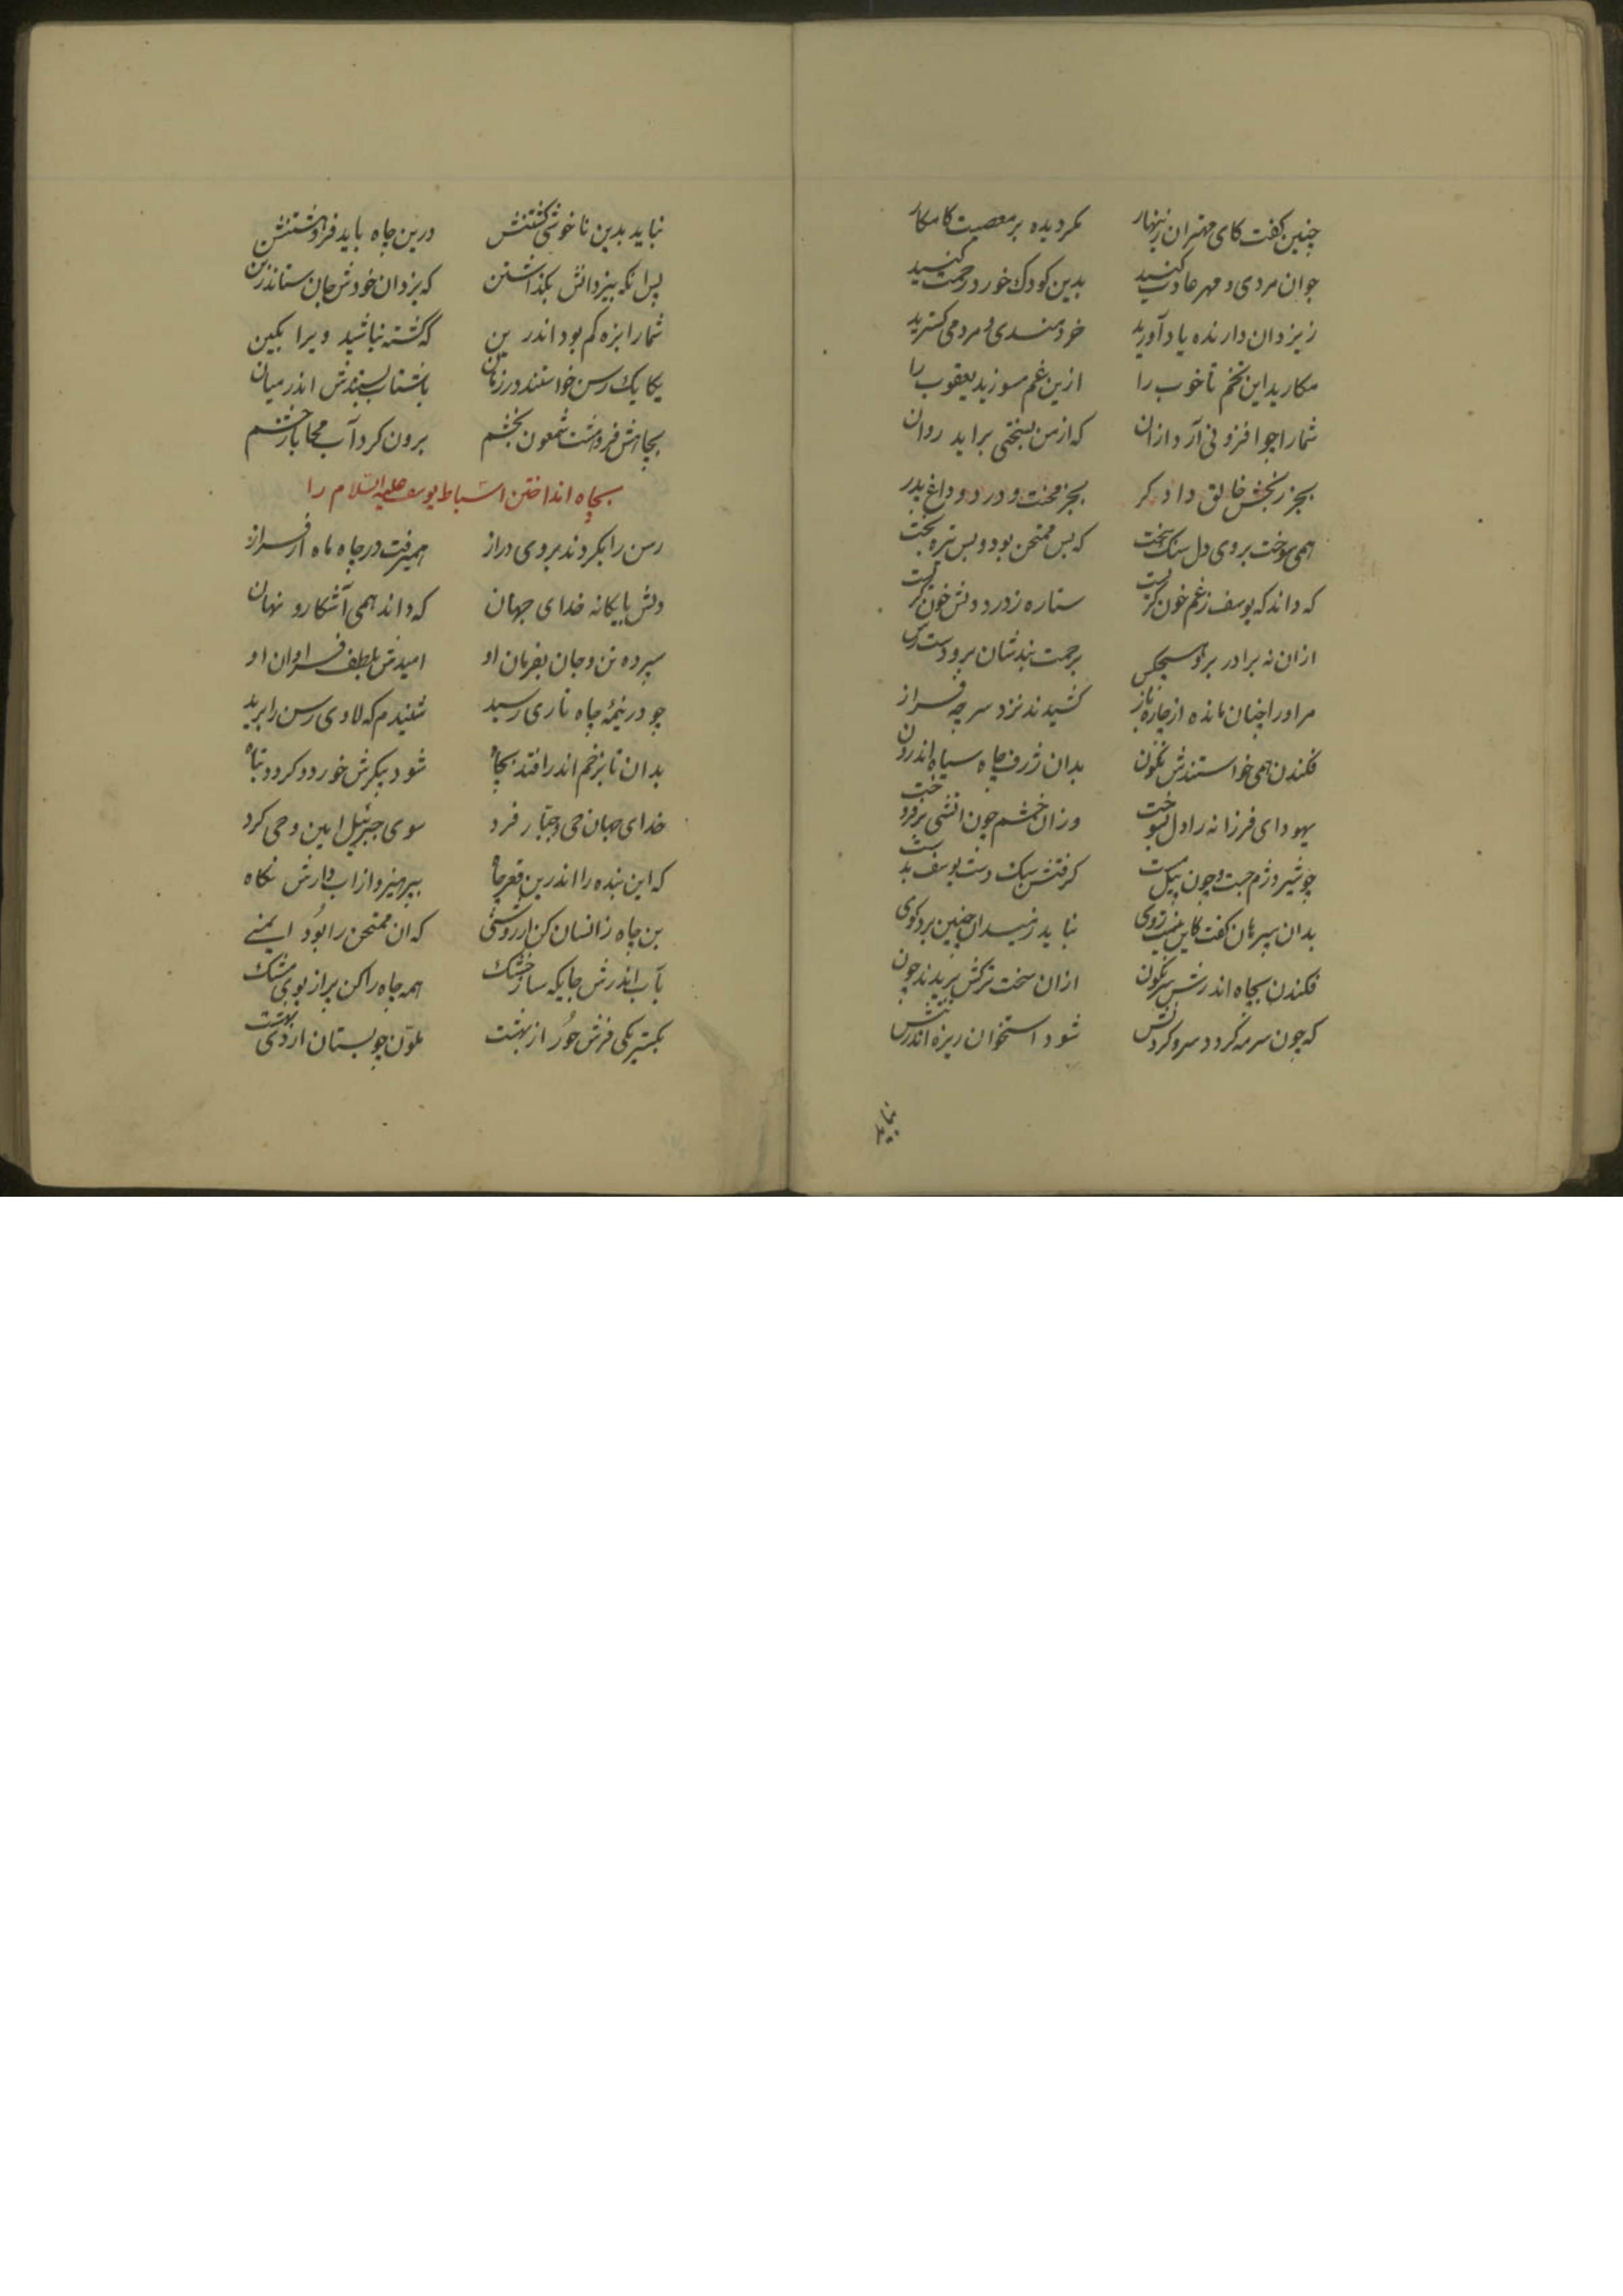 چنین گفت کای مهتران زینهار مگردیده بر معصیت کامکار
جوان مردی و مهر عادت کنید بدین کودک خورد رحمت کنید
ز یزدان دارنده یاد آورید خردمندی و مردمی کسترید
مکارید این تخم ناخوب را ازین غم مسوزید یعقوب را
شمارا چو افزونی آرد ازان که از من بسختی براید روان
بجز رنجش خالق دادکر بجز محنت و درد و داغ پدر
همی سوخت بروی دل سنک سخت که بس ممتحن بود و بس تیره بخت
که داند که یوسف ز غم خون کریست ستاره ز درد دلش خون کریست
ازان نه برادر برو هیچکس برحمت نبدشان برو دست رس
مر او را چنان مانده از چاره باز کشیدند نزد سر چه فراز
فکندن همی خواستندش نکون بدان ژرف چاه سیاه اندرون
یهودای فرزانه را دل بسوخت وزان خشم چون اتشی برفروخت
چو شیر دژم جست و چون پیل مست کرفتش سبک دست یوسف بدست
بدان سپرهان کفت کاین نیست روی نباید رسیدان چنین برد کوی
فکندن بچاه اندرش سرنکون ازان سخت ترکش بریدند خون
که چون سرمه کردد سر و کردنش شود استخوان ریزه اندر تنش
نباید
نباید بدین ناخوشی کشتنش درین چاه باید فروهشتنش
پس انکه بیزدانش بکذاشتن که یزدان خودش جان ستاند زتن
شمارا بزه کم بود اندرین که کشته نباشید ویرا بکین
یکایک رسن خواستند در زمان باشتاب بستندش اندر میان
بچاهش فروهشت شمعون بخشم برون کرد آب محابا ز چشم
بچاه انداختن اسباط یوسف علیه السلام را
رسن را بکردند بروی دراز همیرفت در چاه ماه از فراز
دلش با یکانه خدای جهان که داند همی آشکار و نهان
سپرده تن و جان بفرمان او امیدش بلطف فراوان او
چو در نیمهٔ چاه تاری رسید شنیدم که لاوی رسن را برید
بدان تا بزخم اندر افتد بچاه شود پیکرش خورد و کردد تباه
خدای جهان حی و جبار فرد سوی جبرئیل امین وحی کرد
که این بنده را اندرین قعر چاه بپرهیز و از اب دارش نکاه
بن چاه زانسان کن از روشنی که ان ممتحن را بود ایمنی
بآب اندرش جایکه ساز خشک همه چاه را کن پر از بوی مشک
بکستر یکی فرش حور از بهشت ملون چو بستان اردی بهشت